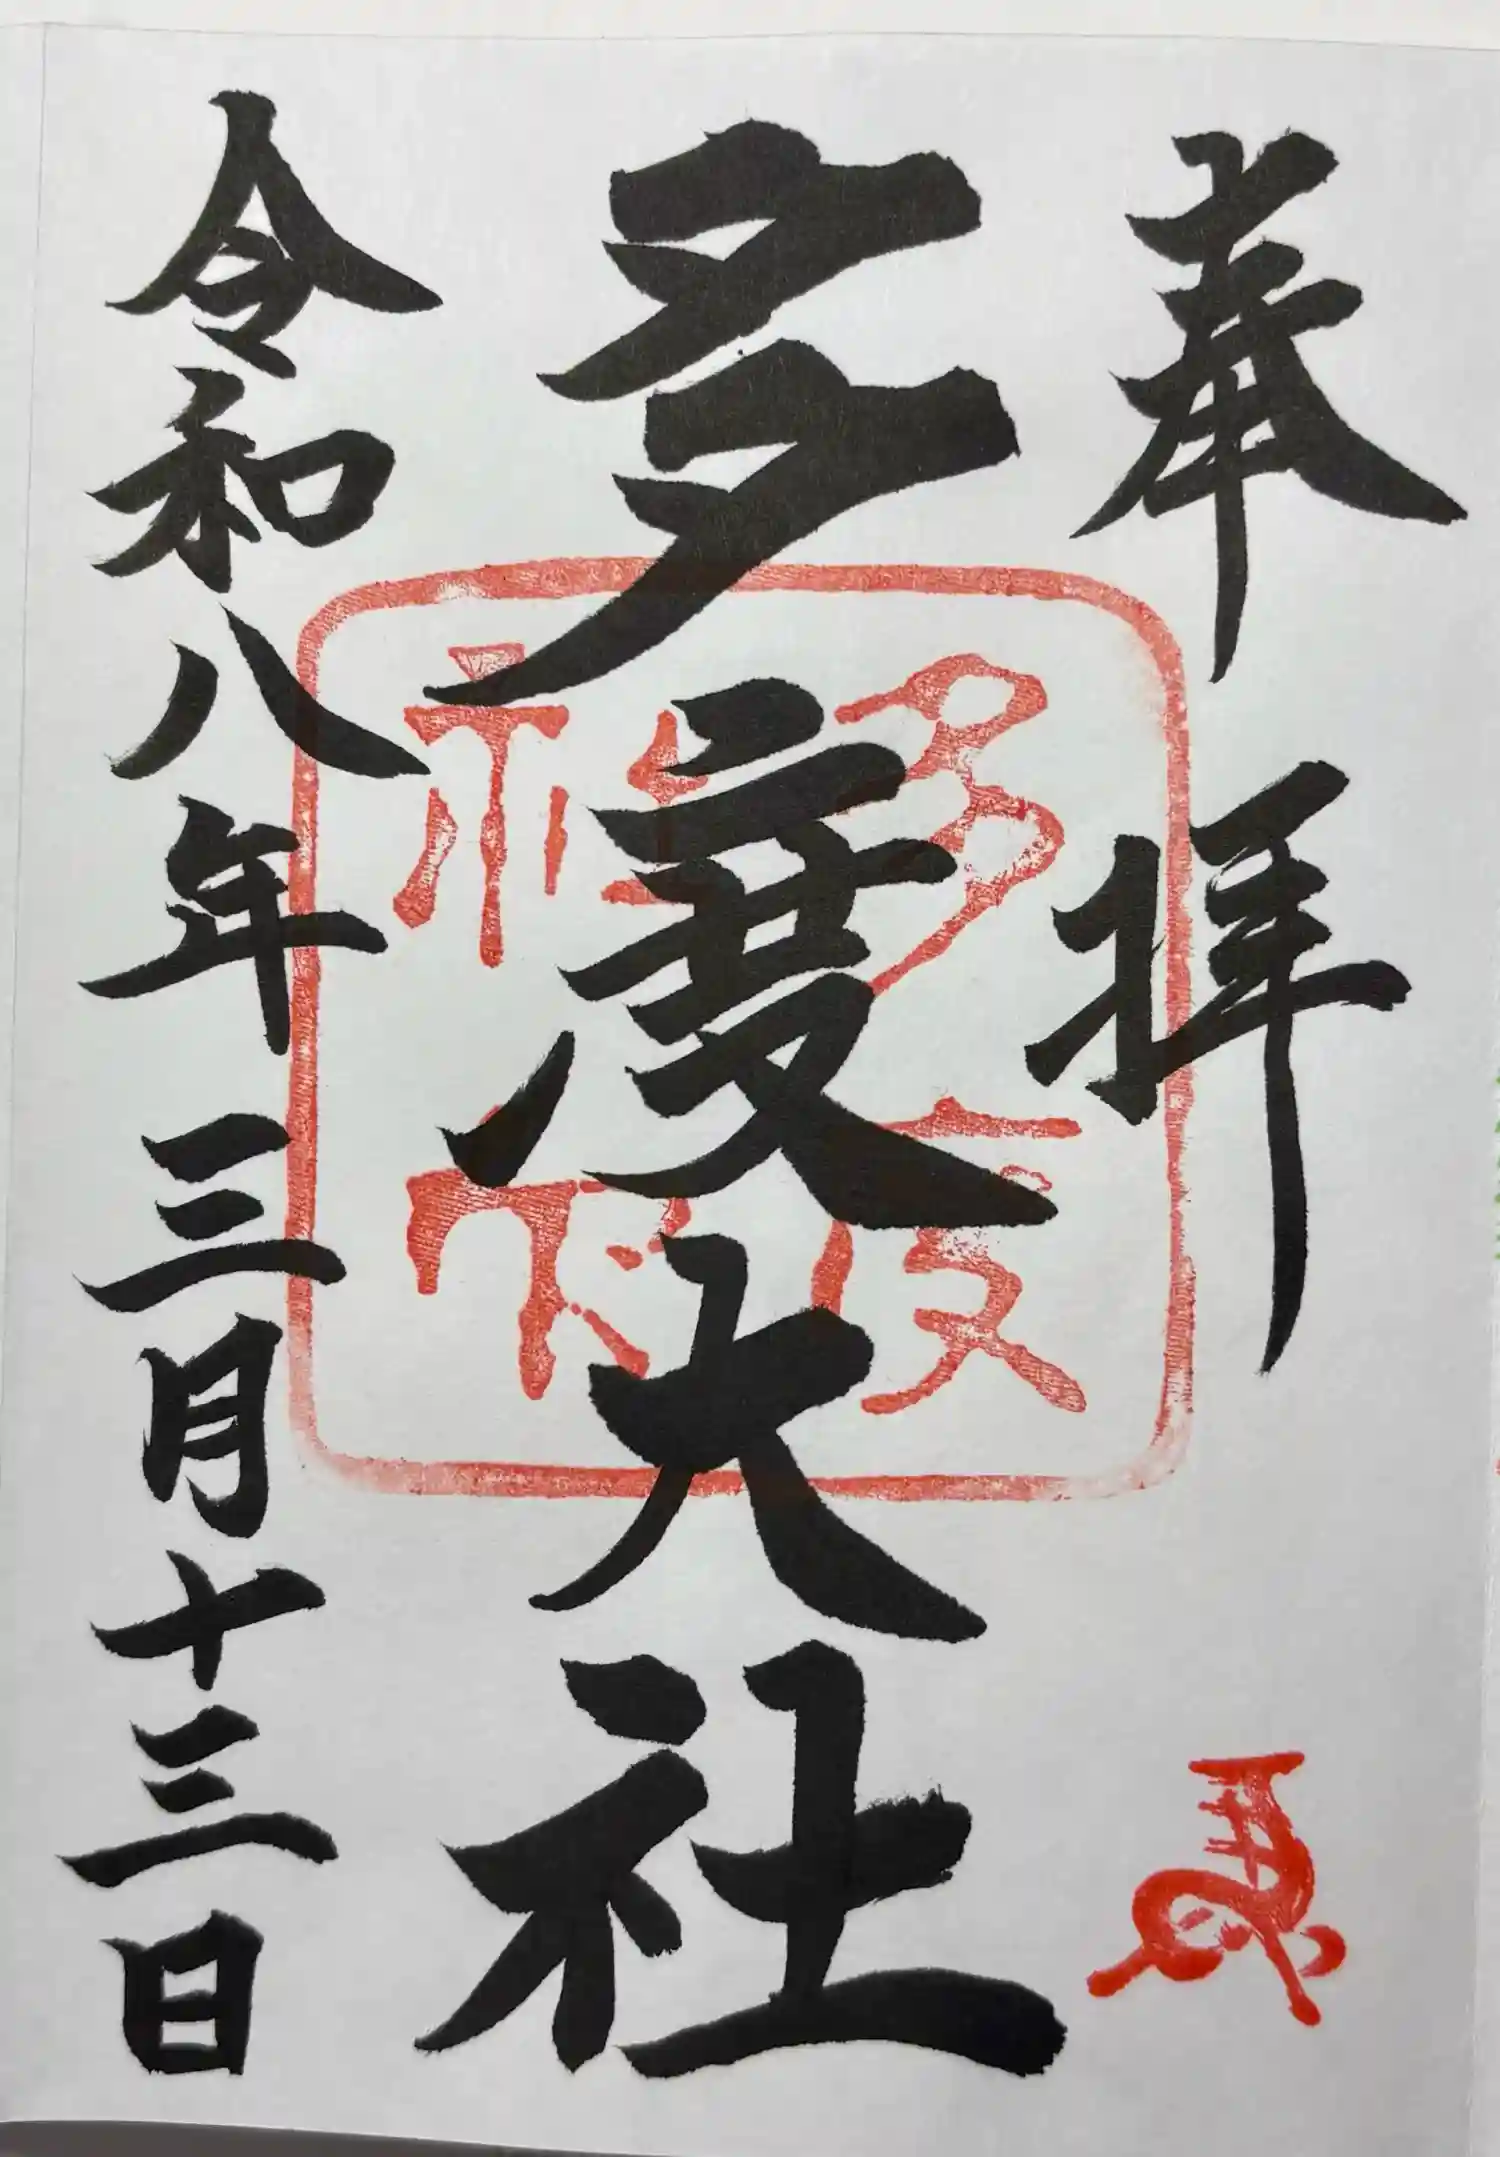 奉拝
多度大社
令和八年三月十三日
多度神社